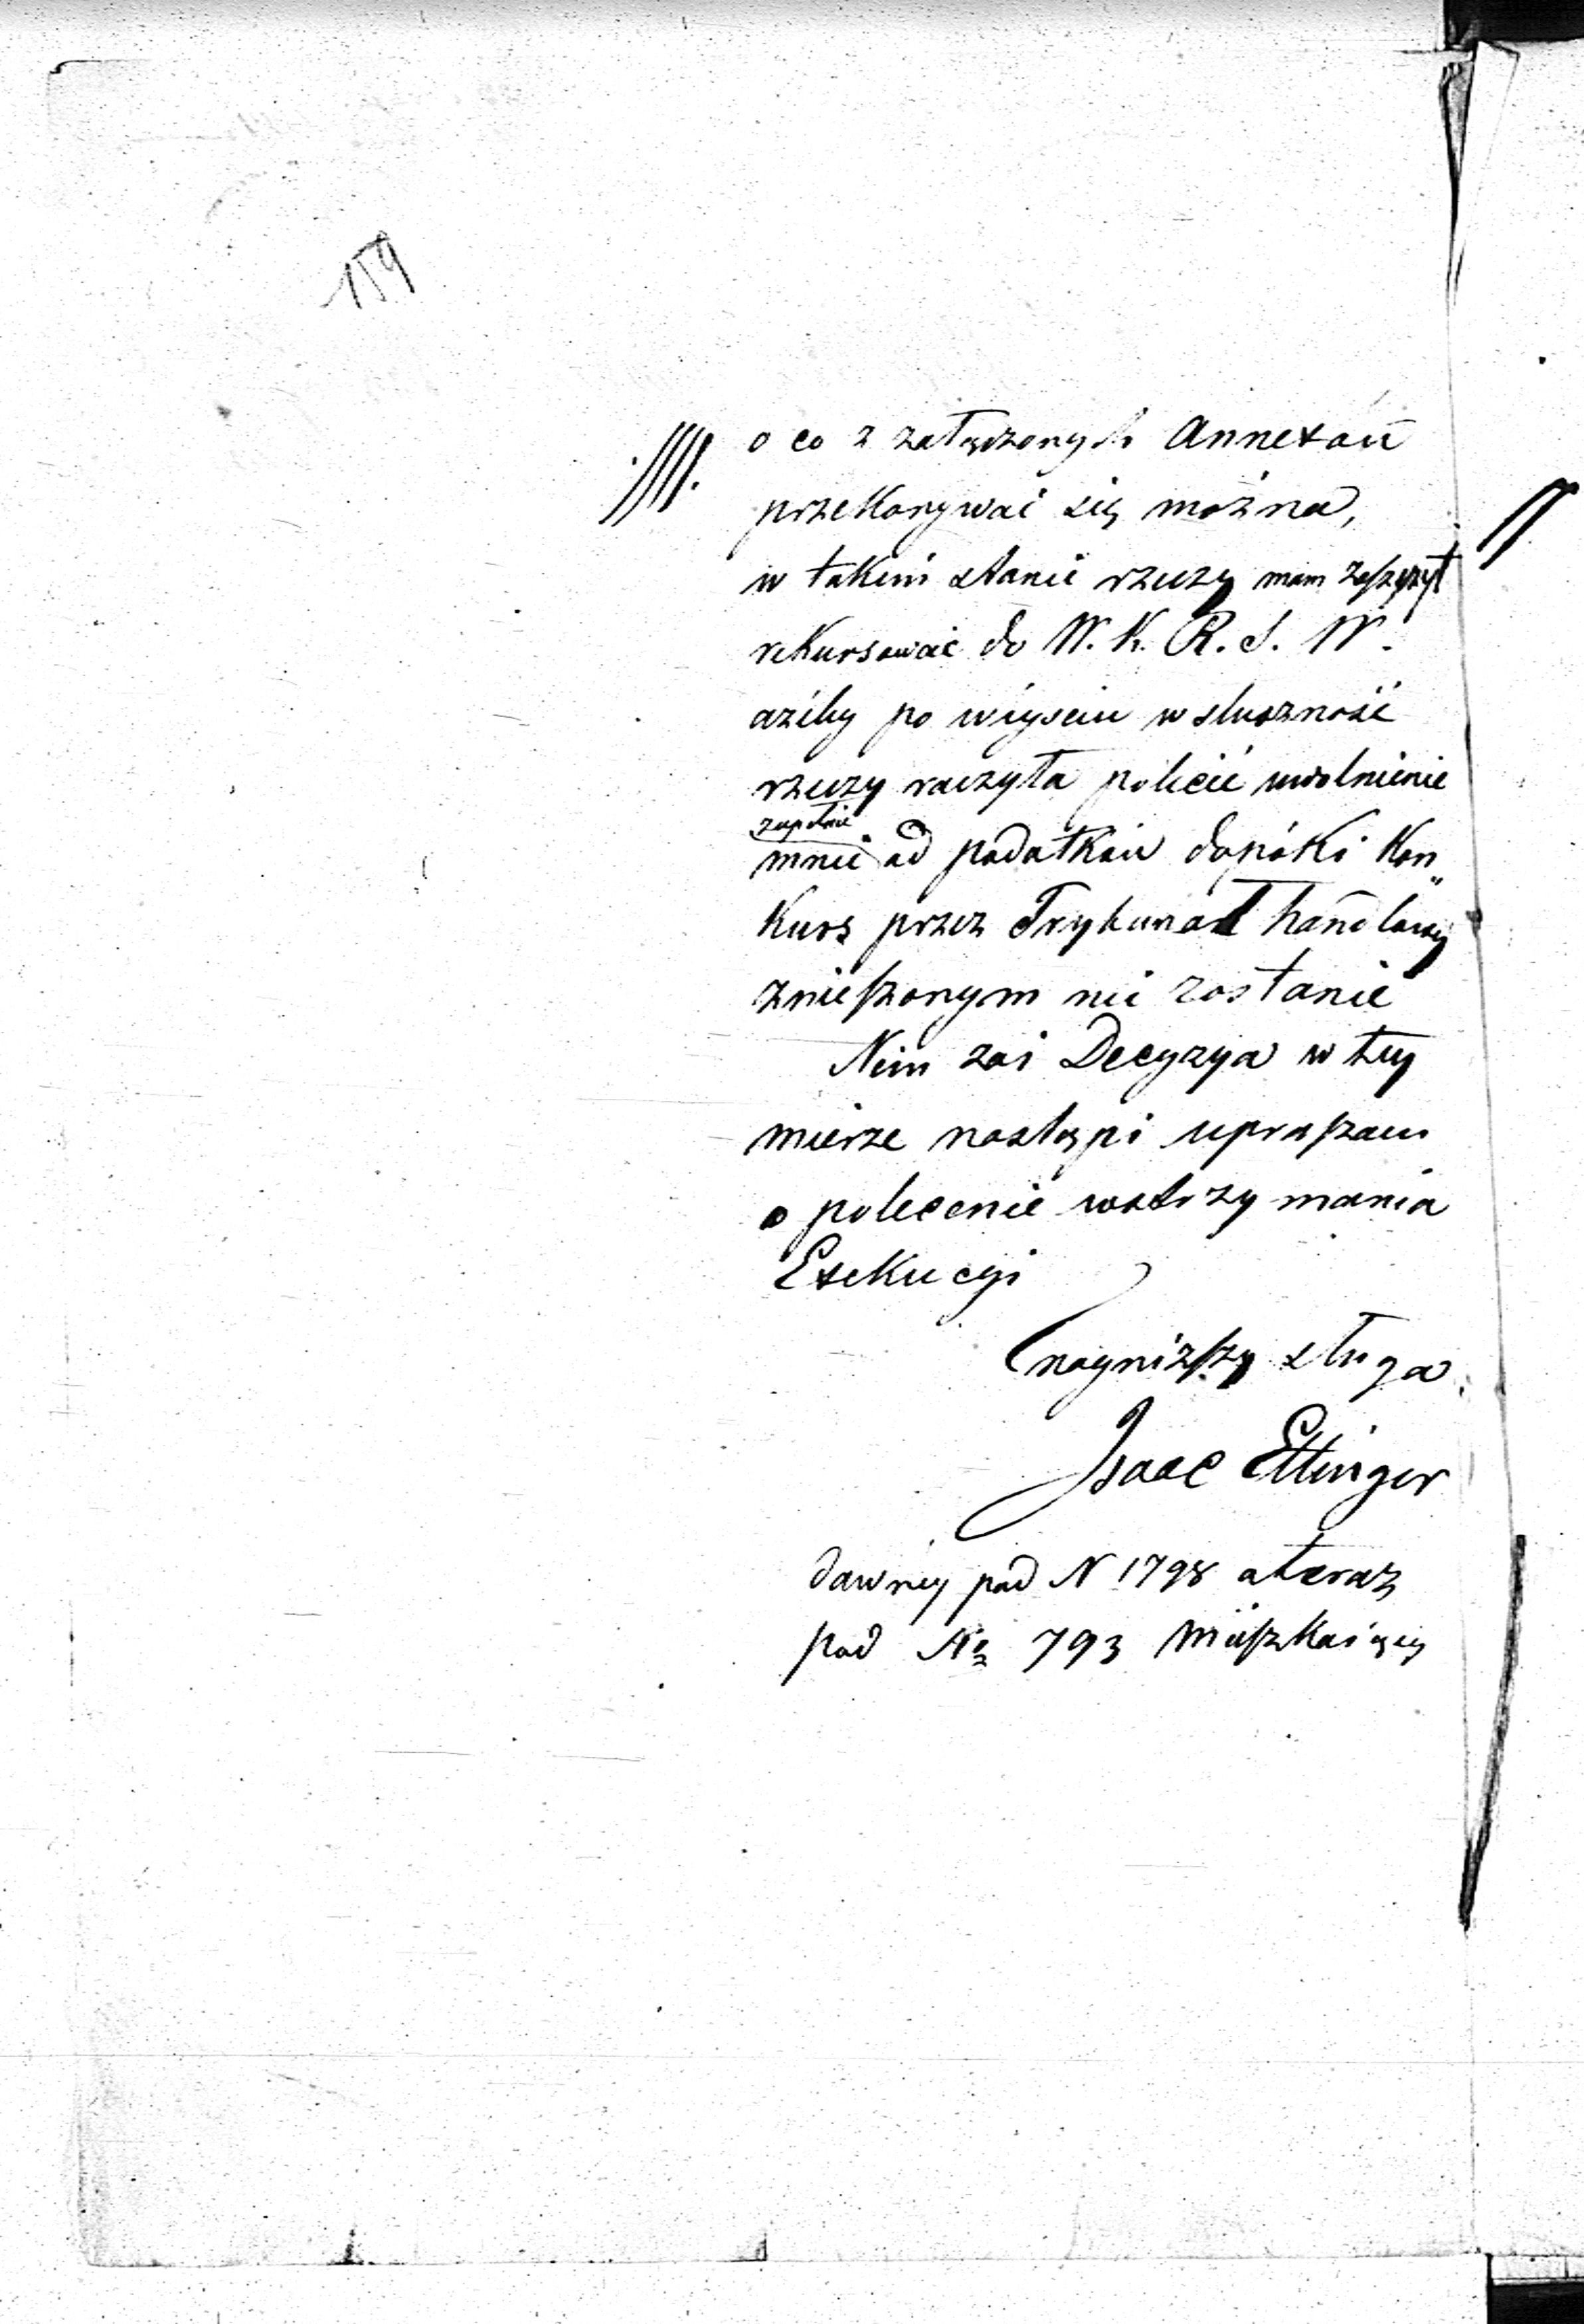 159
o co z załączonych Annexów
przekonywać się można,
w takim stanie rzeczy mam zaszczyt
rekursować do W. K. R. S. W.
ażeby po weyściu w sluszność
rzeczy raczyła polecić uwolnienie
zupełnie
mnie od podatków dopóki Kon„
kurs przez Trybunał handlowy
znieszonym nie zostanie
Nim zaś Decyzya w tey
mierze nastąpi upraszam
o polecenie wstrzymania
Exekucyi
nayniższy sługa.
Isaac Ettinger
dawniey pod N 1798 a teraz
pod No 793 mieszkaiący